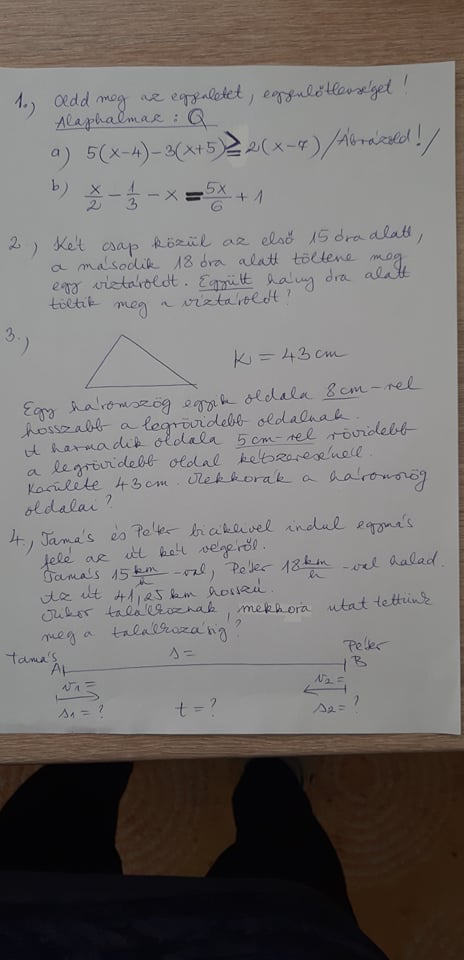 1., Add meg az egyenletet, egyenlőtlenséget!
Alaphalmaz: Q
a) 5(x-4)-3(x+5)≥2(x-7) /Ábrázold!/
b) x/2 - 1/3 - x = 5x/6 + 1
2, Két csap közül az első 15 óra alatt,
a második 18 óra alatt töltene meg
egy víztárolót. Együtt hány óra alatt
töltik meg a víztárolót?
3.,
K = 43 cm
Egy háromszög egyik oldala 8cm-rel
hosszabb a legrövidebb oldalnak.
A harmadik oldala 5cm-rel rövidebb
a legrövidebb oldal kétszeresénél.
Kerülete 43cm. Mekkorák a háromszög
oldalai?
4., Tamás és Péter biciklivel indul egymás
felé az út két végéről.
Tamás 15 km/h -val, Péter 18 km/h -val halad.
Az út 41,25 km hosszú.
Mikor találkoznak, mekkora utat tettünk
meg a találkozásig?
Tamás s= Péter
A B
v1= v2=
s1=? t=? s2=?